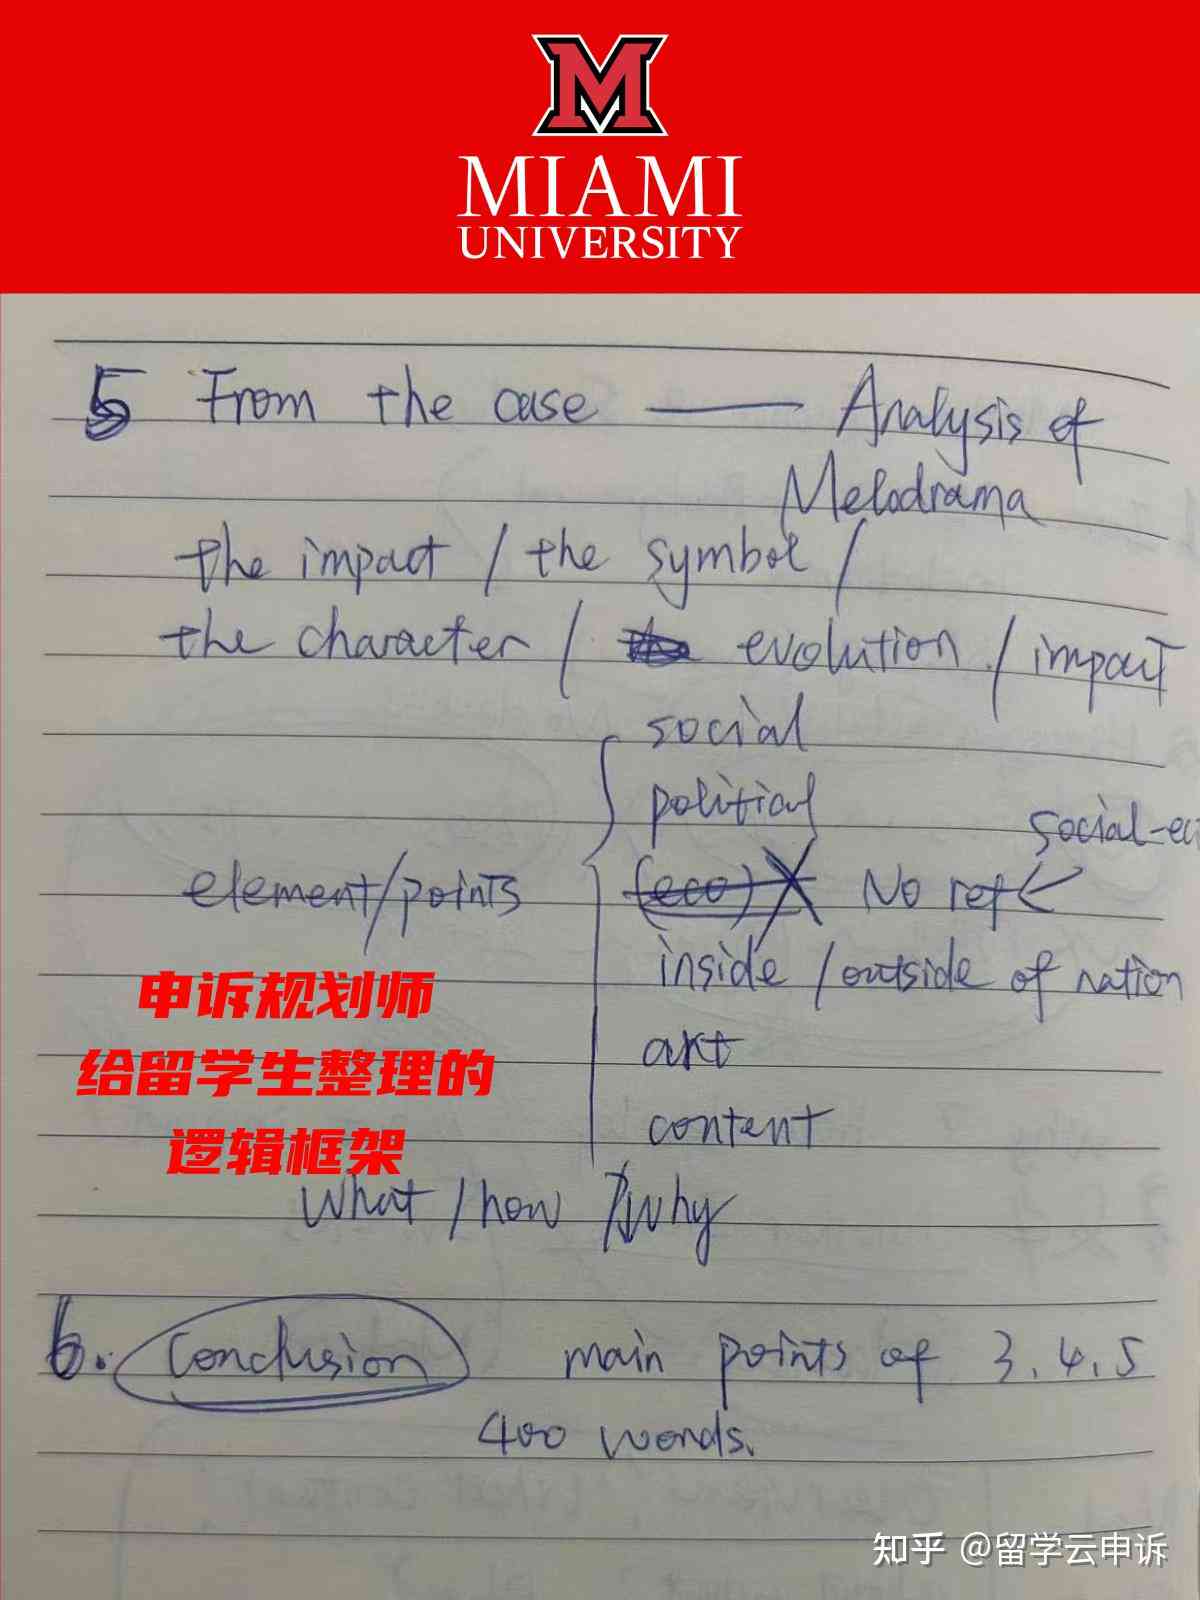 M
MIAMI
UNIVERSITY
5 From the case — Analysis of
Melodrama
the impact / the symbol /
the character / evolution / impact
social
political
social-ec
element/points
(eco) No ref <
inside / outside of nation
art
content
申诉规划师
给留学生整理的
逻辑框架
What / how / why
6. Conclusion main points of 3, 4, 5
400 words.
知乎 @留学云申诉